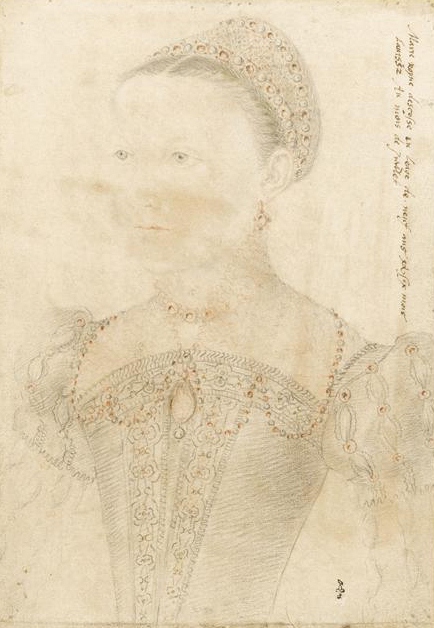 Marie royne descosse en leage de neuf ans et six mois
lan 1552 Au mois de Juillet